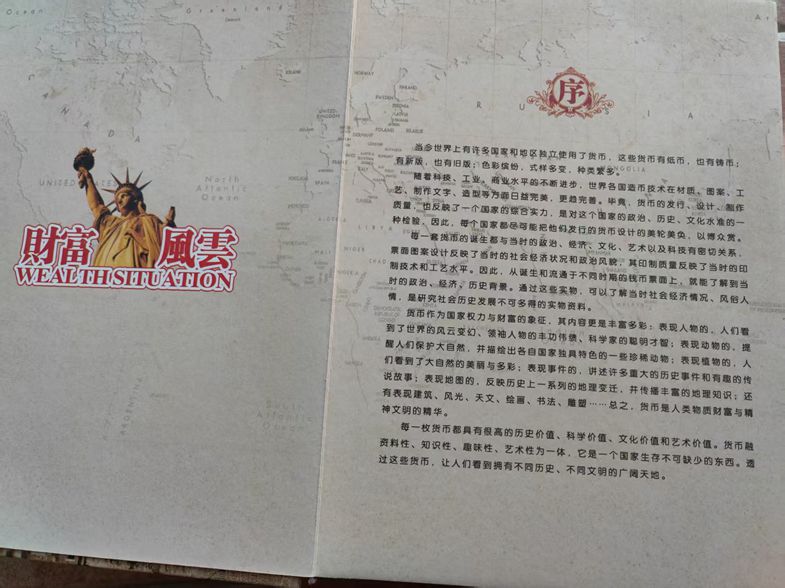 Ocean
Greenland
Ocean
CANADA
UNITED STATES
North
Atlantic
Ocean
財富風雲
WEALTH SITUATION
序
RUSSIA
NORWAY
SWEDEN
FINLAND
UNITED
KINGDOM
GERMANY
POLAND
BELARUS
LIBYA
当今世界上有许多国家和地区独立使用了货币，这些货币有低币，也有铸币；
有新版，也有旧版；色彩缤纷，式样多变，种类繁多。
随着科技、工业、商业水平的不断进步，世界各国造币技术在材质、图案、工
艺、制作文字、造型等方面日益完美，更趋完善。毕竟，货币的发行、设计、制作
质量，也反映了一个国家的综合实力，是对这个国家的政治、历史、文化水准的一
种检验，因此，每个国家都尽可能把他们发行的货币设计的美轮美奂，以博众赏。
每一套货币的诞生都与当时的政治、经济、文化、艺术以及科技有密切关系，
票面图案设计反映了当时的社会经济状况和政治风貌，其印制质量反映了当时的印
制技术和工艺水平。因此，从诞生和流通于不同时期的钱币票面上，就能了解到当
时的政治、经济、历史背景。通过这些实物，可以了解当时社会经济情况、风俗人
情，是研究社会历史发展不可多得的实物资料。
货币作为国家权力与财富的象征，其内容更是丰富多彩：表现人物的，人们看
到了世界的风云变幻、领袖人物的丰功伟绩、科学家的聪明才智；表现动物的，提
醒人们保护大自然，并描绘出各自国家独具特色的一些珍稀动物；表现植物的，人
们看到了大自然的美丽与多彩；表现事件的，讲述许多重大的历史事件和有趣的传
说故事；表现地图的，反映历史上一系列的地理变迁，并传播丰富的地理知识；还
有表现建筑、风光、天文、绘画、书法、雕塑……总之，货币是人类物质财富与精
神文明的精华。
每一枚货币都具有很高的历史价值、科学价值、文化价值和艺术价值。货币融
资料性、知识性、趣味性、艺术性为一体，它是一个国家生存不可缺少的东西。透
过这些货币，让人们看到拥有不同历史、不同文明的广阔天地。